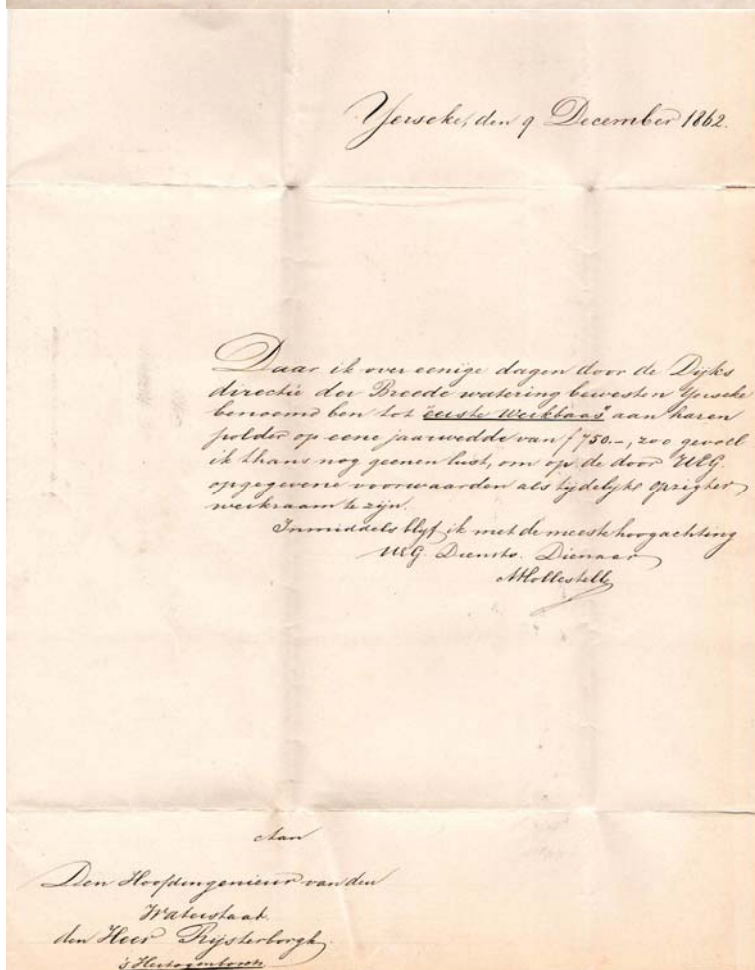 Yerseke, den 9 December 1862.
Daar ik over eenige dagen door de Dijks
directie der Breede watering bewesten Yerseke
benoemd ben tot "eerste Werkbaas" aan haren
polder op eene jaarwedde van f 750.-, zoo gevoel
ik thans nog geenen lust, om op de door UEG.
opgegevene voorwaarden als tijdelijke opzigter
werkzaam te zijn.
Inmiddels blijf ik met de meeste hoogachting
UEG. Diensto. Dienaar
AHollestelle
Aan
Den Hoofdingenieur van den
Waterstaat.
den Heer Rijsterborgh
's Hertogenbosch